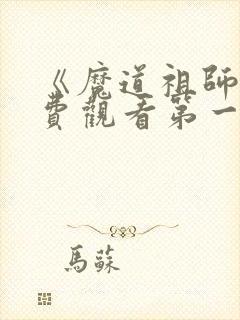 《魔道祖師
費觀看第一
馬蘇